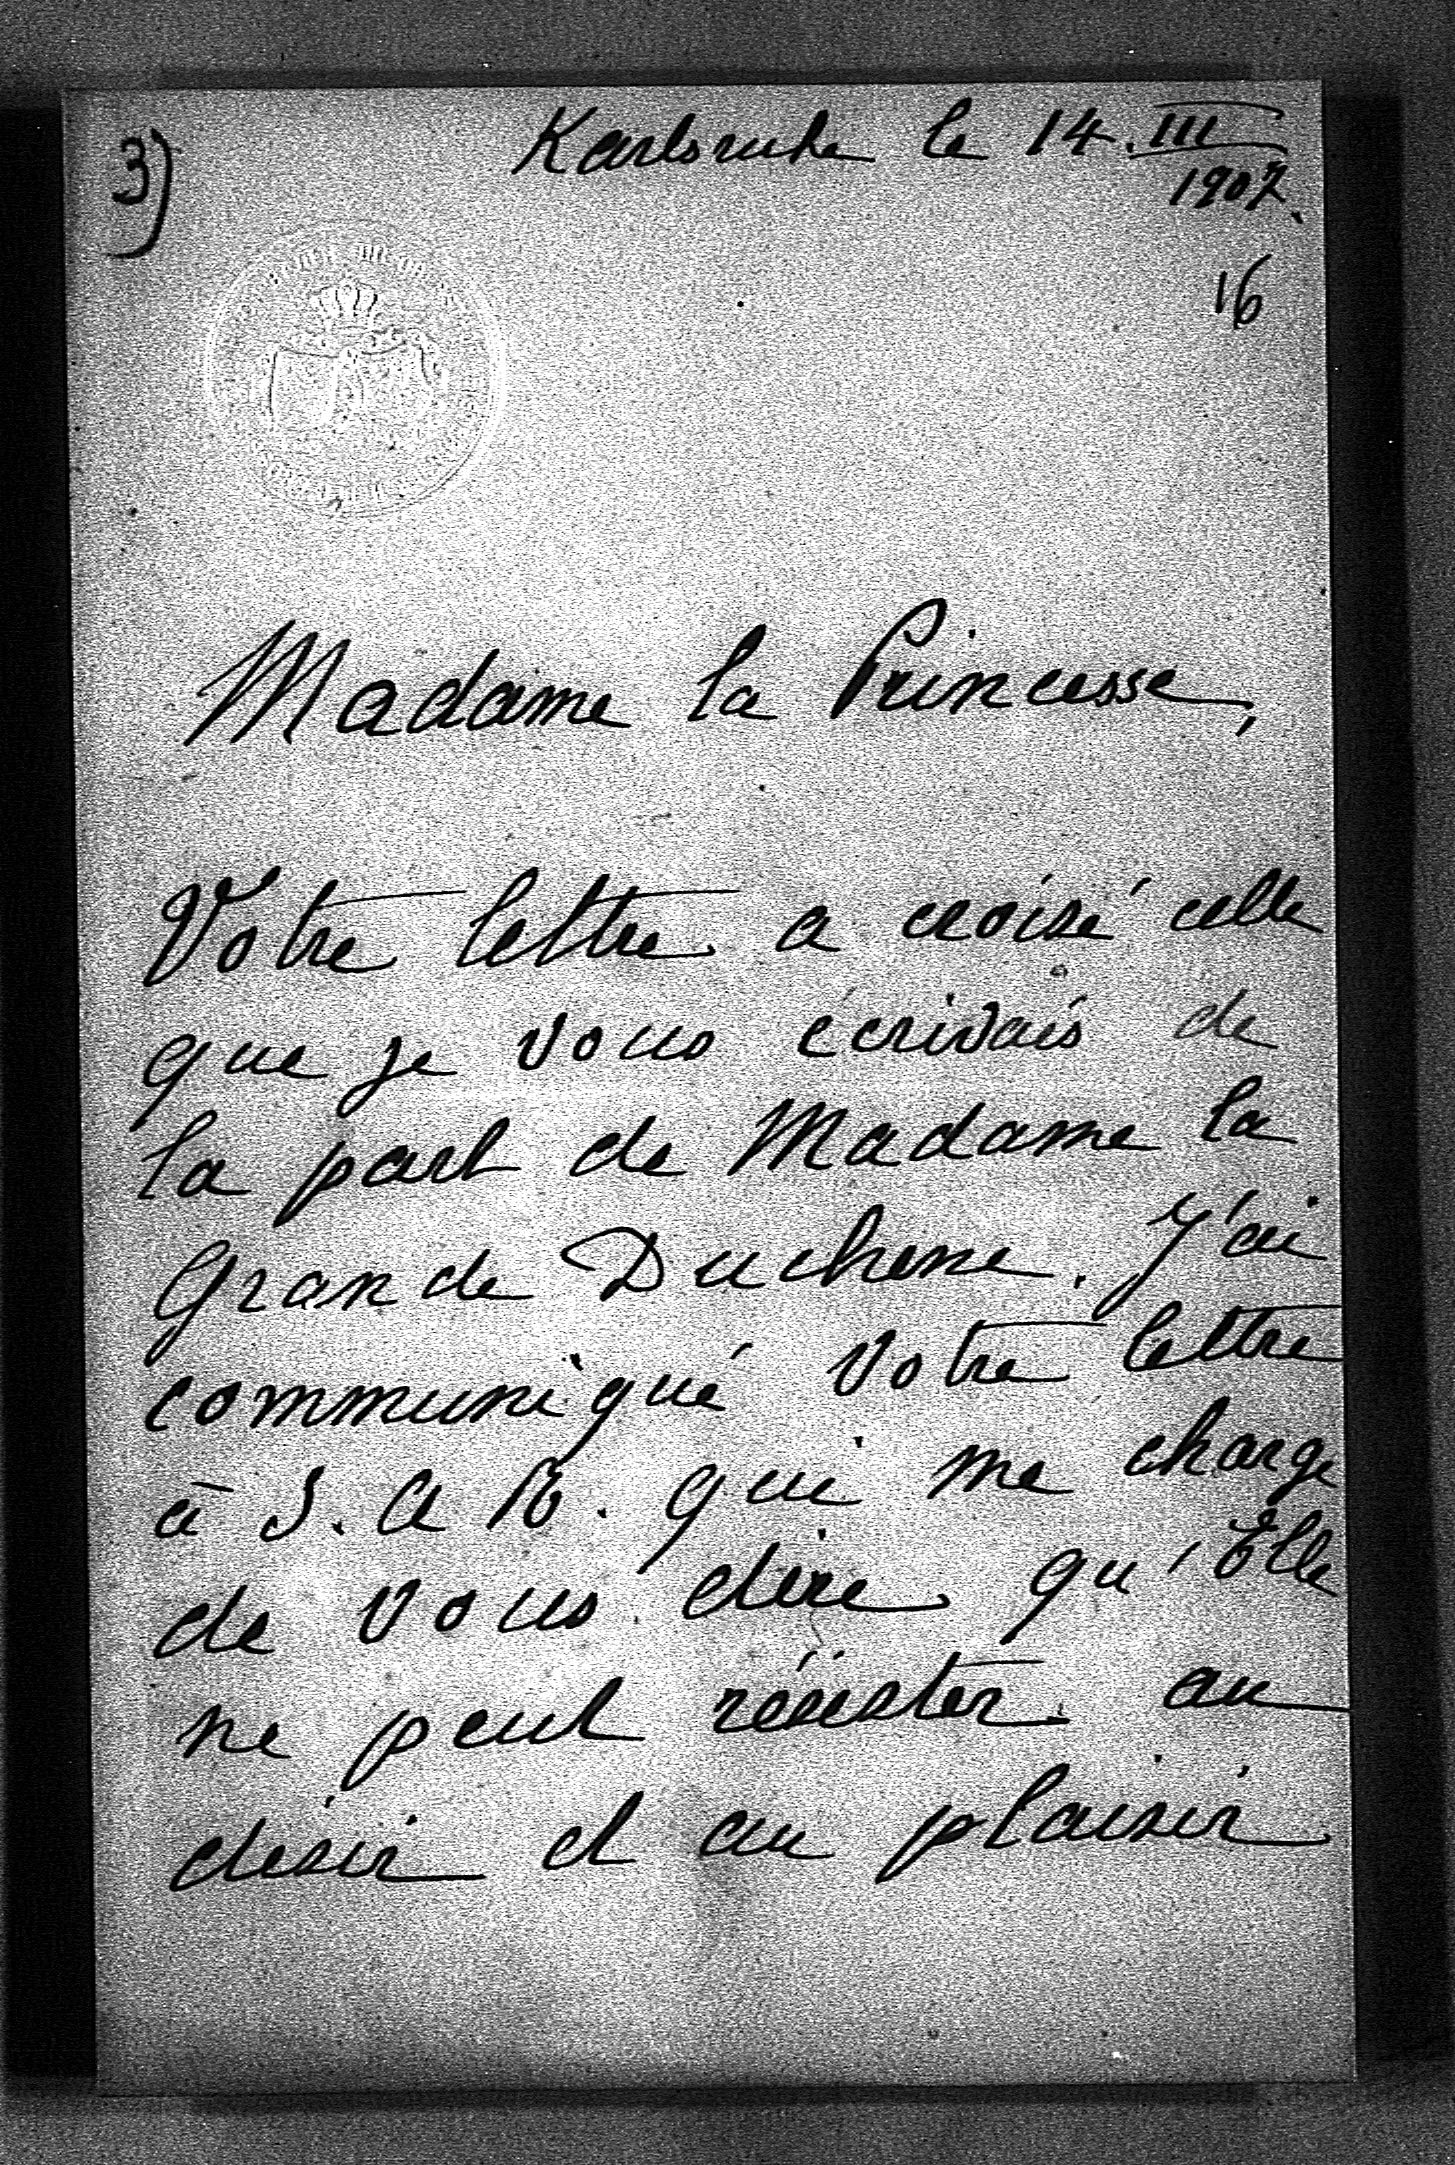 3)
Karlsruhe le 14. III
1907.
16
Madame la Princesse,
Votre lettre a croisé celle
que je vous écrivais de
la part de Madame la
Grande Duchesse. J'ai
communiqué votre lettre
à S. A R. qui me charge
de vous dire qu'Elle
ne peut résister au
désir et au plaisir